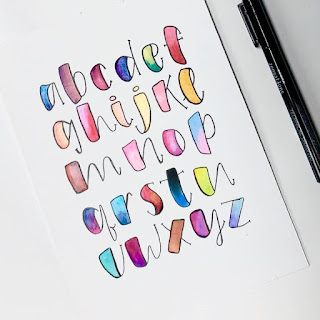 abcdef
ghijkl
mnop
qrstu
vwxyz